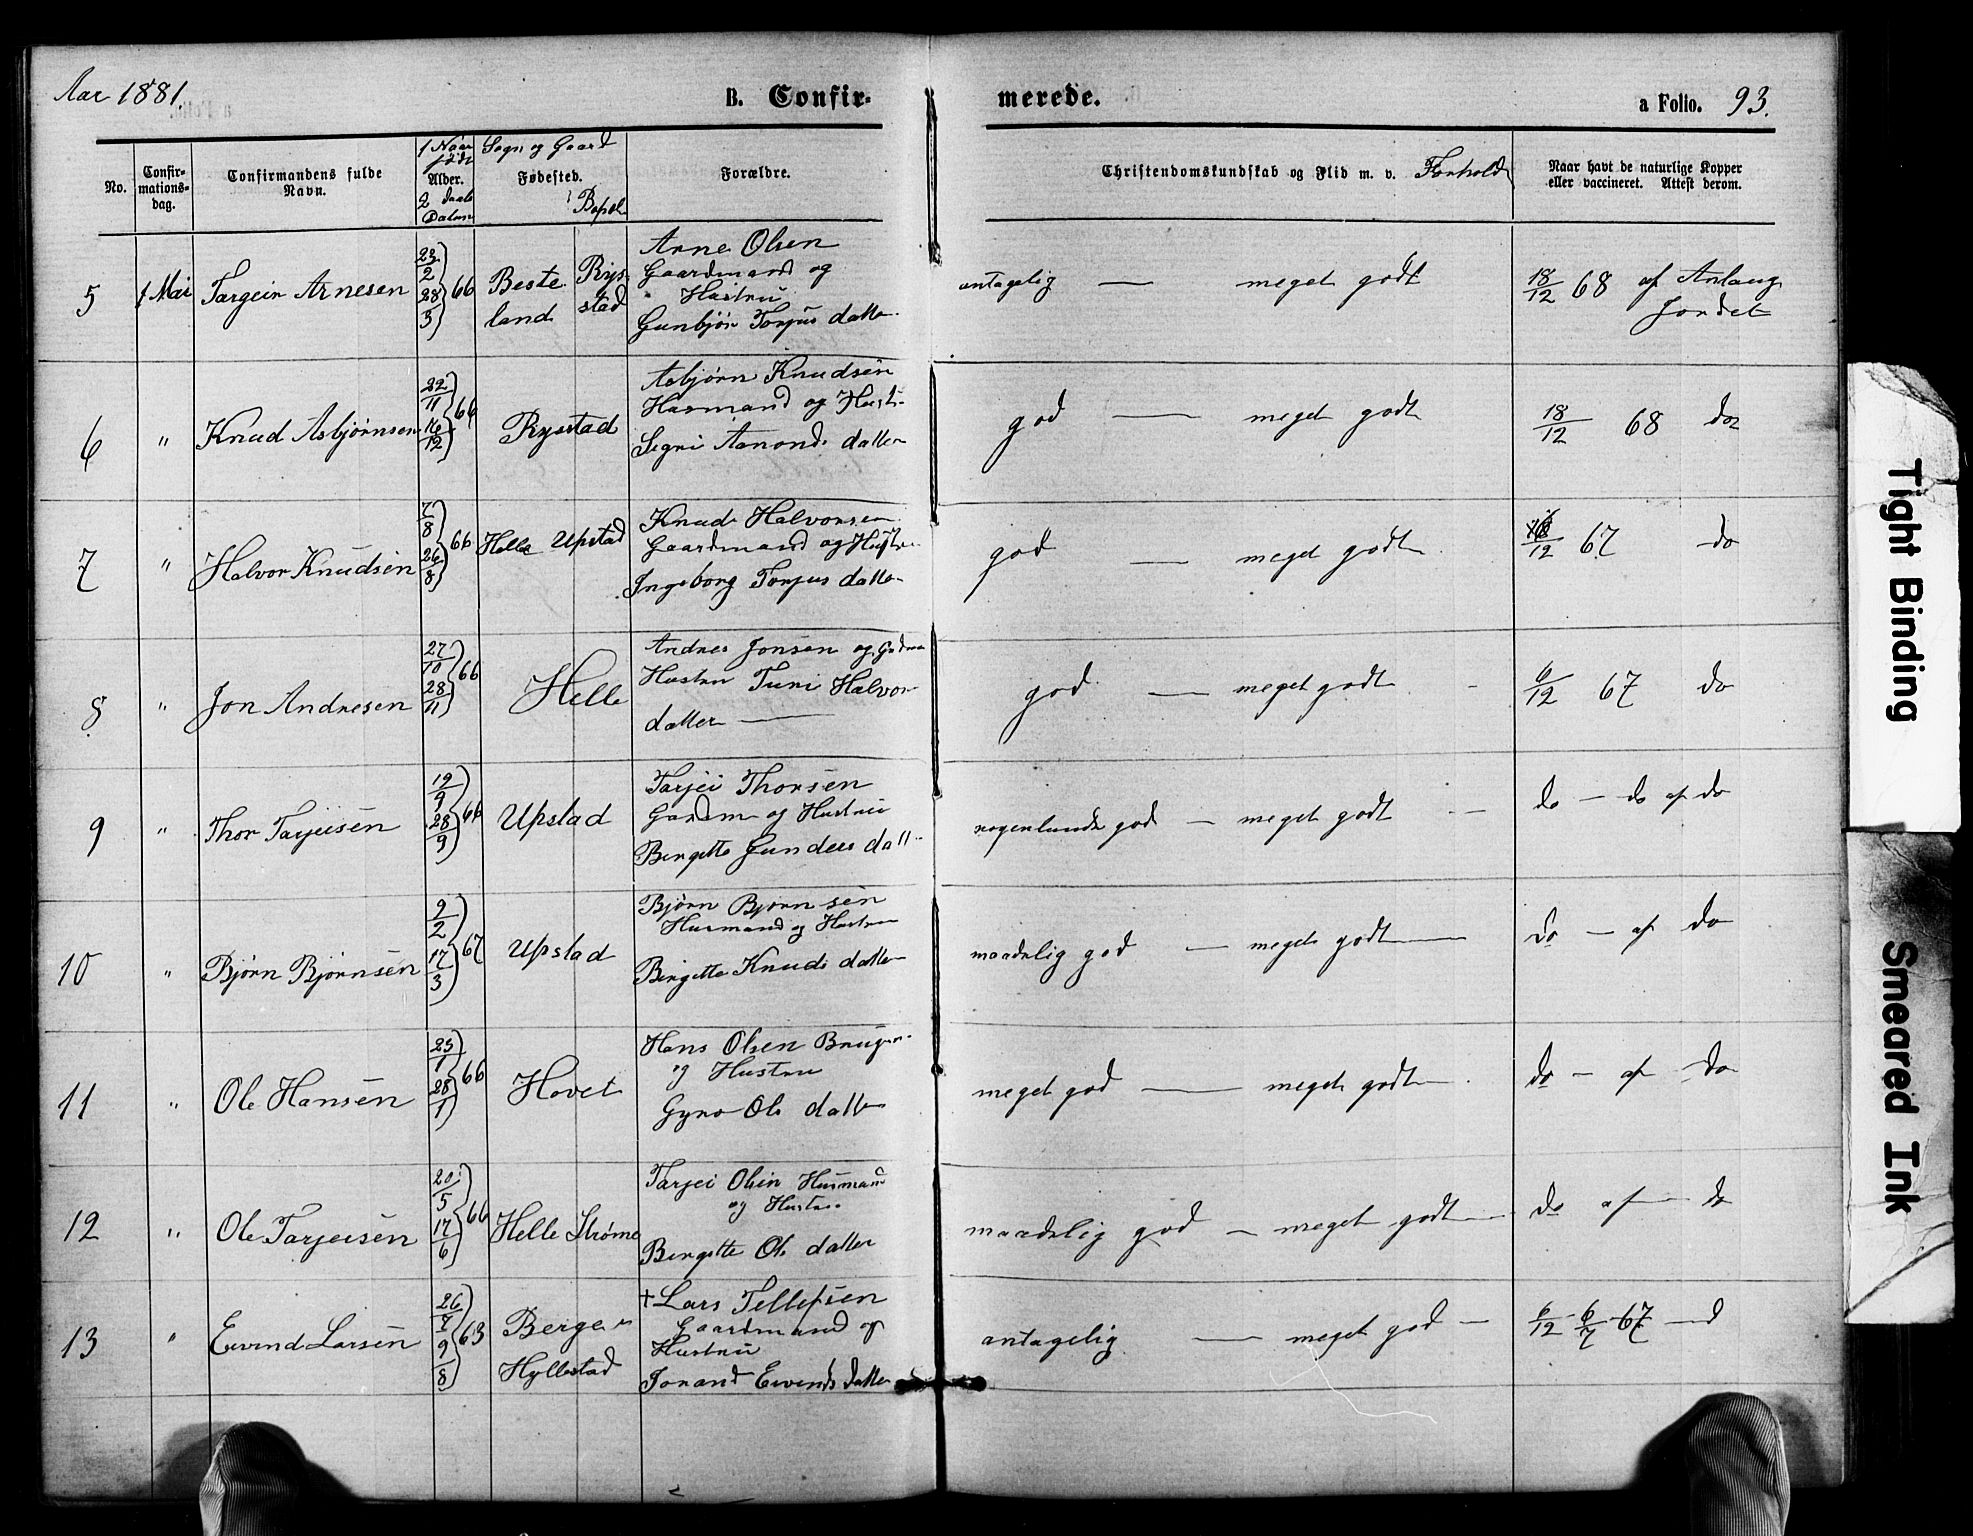 Aar 1881.
B. Confir-
merede.
a Folio. 93.
No.
Confir-
mations-
dag.
Confirmandens fulde
Navn.
1 Naar
født
Alder.
2 Daabs
Datum
Sogn og Gaard
Fødested.
Bopæl
Forældre.
Christendomskundskab og Flid m. v. Forhold
Naar havt de naturlige Kopper
eller vaccineret. Attest derom.
5 1 Mai Targeir Arnesen 23/2 28/3 66 Besteland Rysstad
Arne Olsen
Gaardmand og
Hustru
Gunbjør Torjus datter
antagelig — meget godt
18/12 68 af Anlaug
Jordet
6 " Knud Asbjørnsen 22/11 16/12 66 Rysstad
Asbjørn Knudsen
Husmand og Hustr
Segri Aanonds datter
god — meget godt
18/12 68 do
7 " Halvor Knudsen 7/8 26/8 66 Helle Upstad
Knud Halvorsen
Gaardmand og Hustru
Ingeborg Torjus datter
god — meget godt
/12 67 do
8 " Jon Andresen 27/10 28/11 66 Helle
Andres Jonsen og Gdm
Hustru Turi Halvor
datter —
god — meget godt
6/12 67 do
9 " Thor Tarjeisen 19/9 28/9 66 Upstad
Tarjei Thorsen
Gardm og Hustru
Bergitte Gunders datt
nogenlunde god — meget godt —
do — do af do
10 " Bjørn Bjørnsen 9/2 17/3 67 Upstad
Bjørn Bjørnsen
Husmand og Hustru
Birgitte Knuds datter
maadelig god — meget godt —
do — af do
11 " Ole Hansen 23/1 28/1 66 Hovet
Hans Olsen Bruger
og Hustru
Gyro Ols datter
meget god — meget godt —
do — af do
12 " Ole Tarjeisen 20/5 17/6 66 Helle Strømme
Tarjei Olsen Husmand
og Hustru
Bergitte Ols datter
maadelig god — meget godt —
do af — do
13 " Eivind Larsen 26/7 9/8 63 Berge
Hyllestad
† Lars Tellefsen
Gaardmand og
Hustru
Jorand Eivinds datter
antagelig — meget god —
6/12 - 6/7 - 67 — d
Tight Binding
Smeared Ink